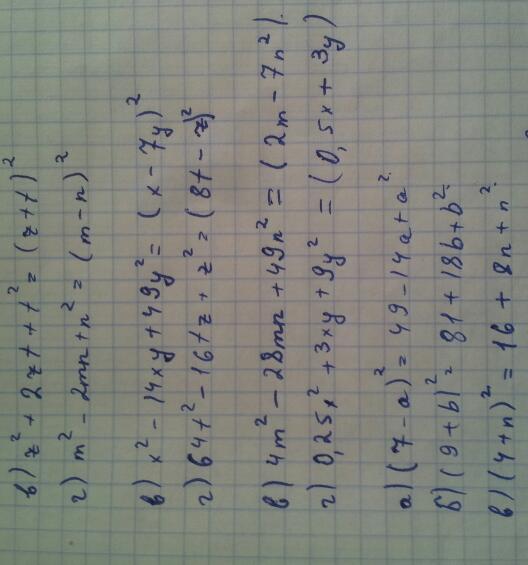 в) z² + 2zt + t² = (z+t)²
г) m² - 2mn + n² = (m-n)²
в) x² - 14xy + 49y² = (x - 7y)²
г) 64t² - 16tz + z² = (8t - z)²
в) 4m² - 28mn + 49n² = (2m - 7n²).
г) 0,25x² + 3xy + 9y² = (0,5x + 3y)
а) (7-a)² = 49 - 14a + a².
б) (9+b)² = 81 + 18b + b².
в) (4+n)² = 16 + 8n + n².